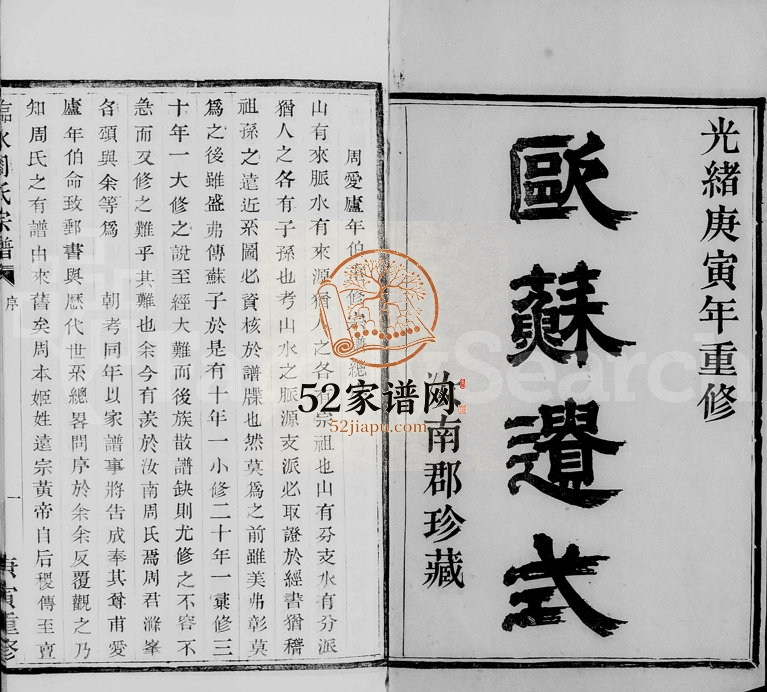 光緒庚寅年重修
歐蘇遺式
汝南郡珍藏
周愛廬年伯重修宗譜總
山有來脈水有來源猶人之各有宗祖也山有分支水有分派
猶人之各有子孫也考山水之脈源支派必取證於經書猶稽
祖孫之遠近系圖必資核於譜牒也然莫爲之前雖美弗彰莫
爲之後雖盛弗傳蘇子於是有十年一小修二十年一彙修三
十年一大修之說至經大難而後族散譜缺則尤修之不容不
急而又修之難乎其難也余今有羨於汝南周氏焉周君滌峯
各領與余等爲 朝考同年以家譜事將告成奉其尊甫愛
廬年伯命致郵書與歷代世系總畧問序於余余反覆觀之乃
知周氏之有譜由來舊矣周本姬姓遠宗黃帝自后稷傳至亶
臨水周氏宗譜 序 一 庚寅重修
52家谱网
52jiapu.com
Search